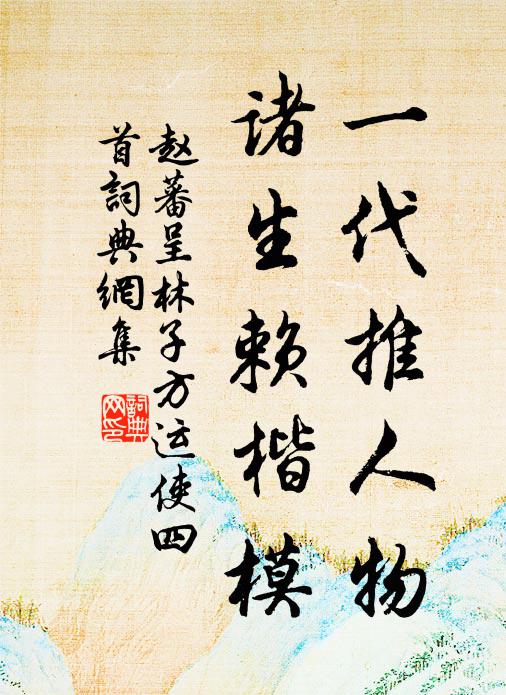 一代推人物
诸生赖楷模
赵蕃呈林子方运使四
首词典网集
词典网印